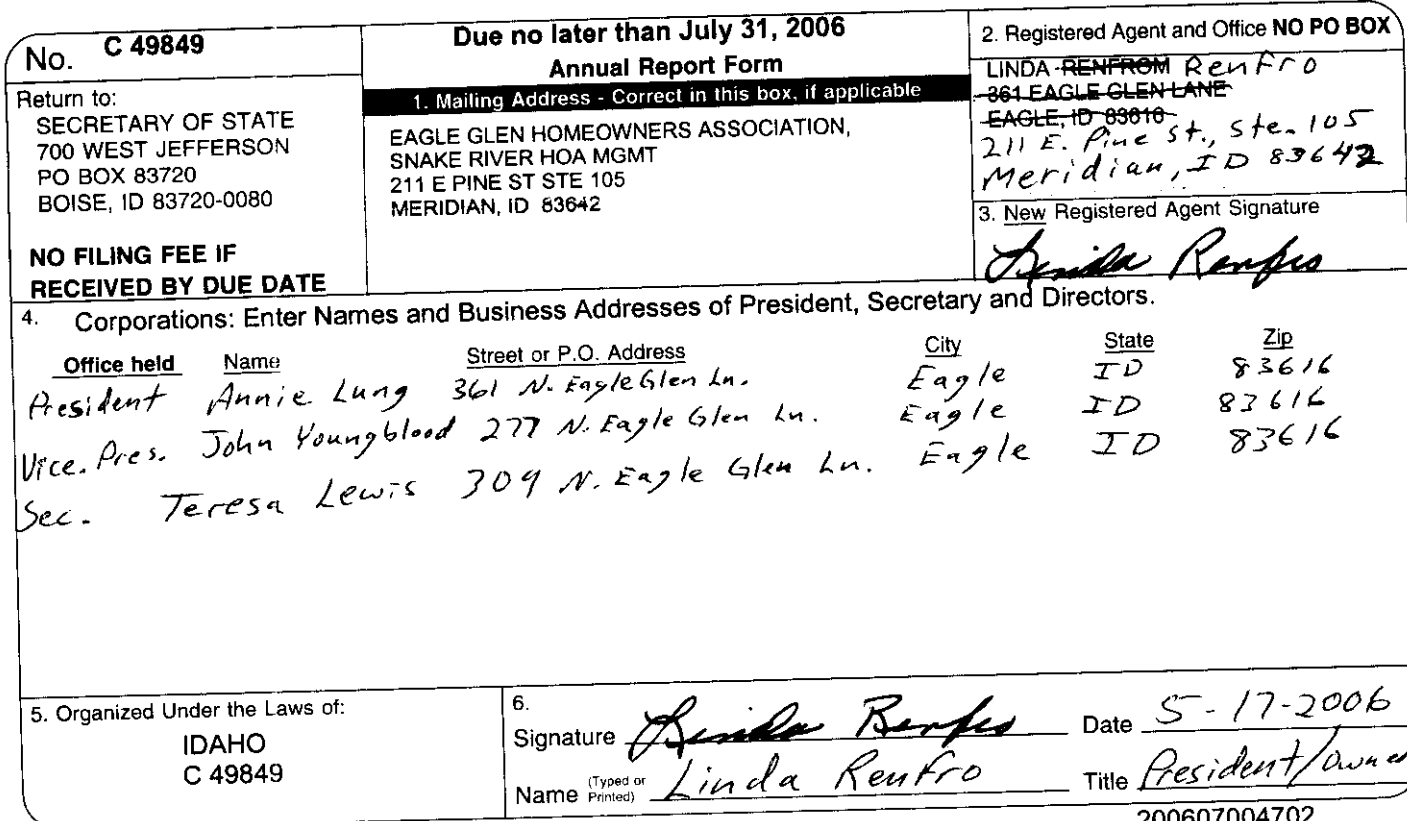 No. C 49849
Return to:
SECRETARY OF STATE
700 WEST JEFFERSON
PO BOX 83720
BOISE, ID 83720-0080
NO FILING FEE IF
RECEIVED BY DUE DATE
Due no later than July 31, 2006
Annual Report Form
1. Mailing Address - Correct in this box, if applicable
EAGLE GLEN HOMEOWNERS ASSOCIATION,
SNAKE RIVER HOA MGMT
211 E PINE ST STE 105
MERIDIAN, ID 83642
2. Registered Agent and Office NO PO BOX
LINDA RENFROM Renfro
361 EAGLE GLEN LANE
EAGLE, ID 83616
211 E. Pine St., Ste. 105
Meridian, ID 83642
3. New Registered Agent Signature
Linda Renfro
4. Corporations: Enter Names and Business Addresses of President, Secretary and Directors.
Office held Name Street or P.O. Address City State Zip
President Annie Lung 361 N. Eagle Glen Ln. Eagle ID 83616
Vice. Pres. John Youngblood 277 N. Eagle Glen Ln. Eagle ID 83616
Sec. Teresa Lewis 309 N. Eagle Glen Ln. Eagle ID 83616
5. Organized Under the Laws of:
IDAHO
C 49849
6.
Signature Linda Renfro Date 5-17-2006
Name (Typed or Printed) Linda Renfro Title President/Owner
200607004702